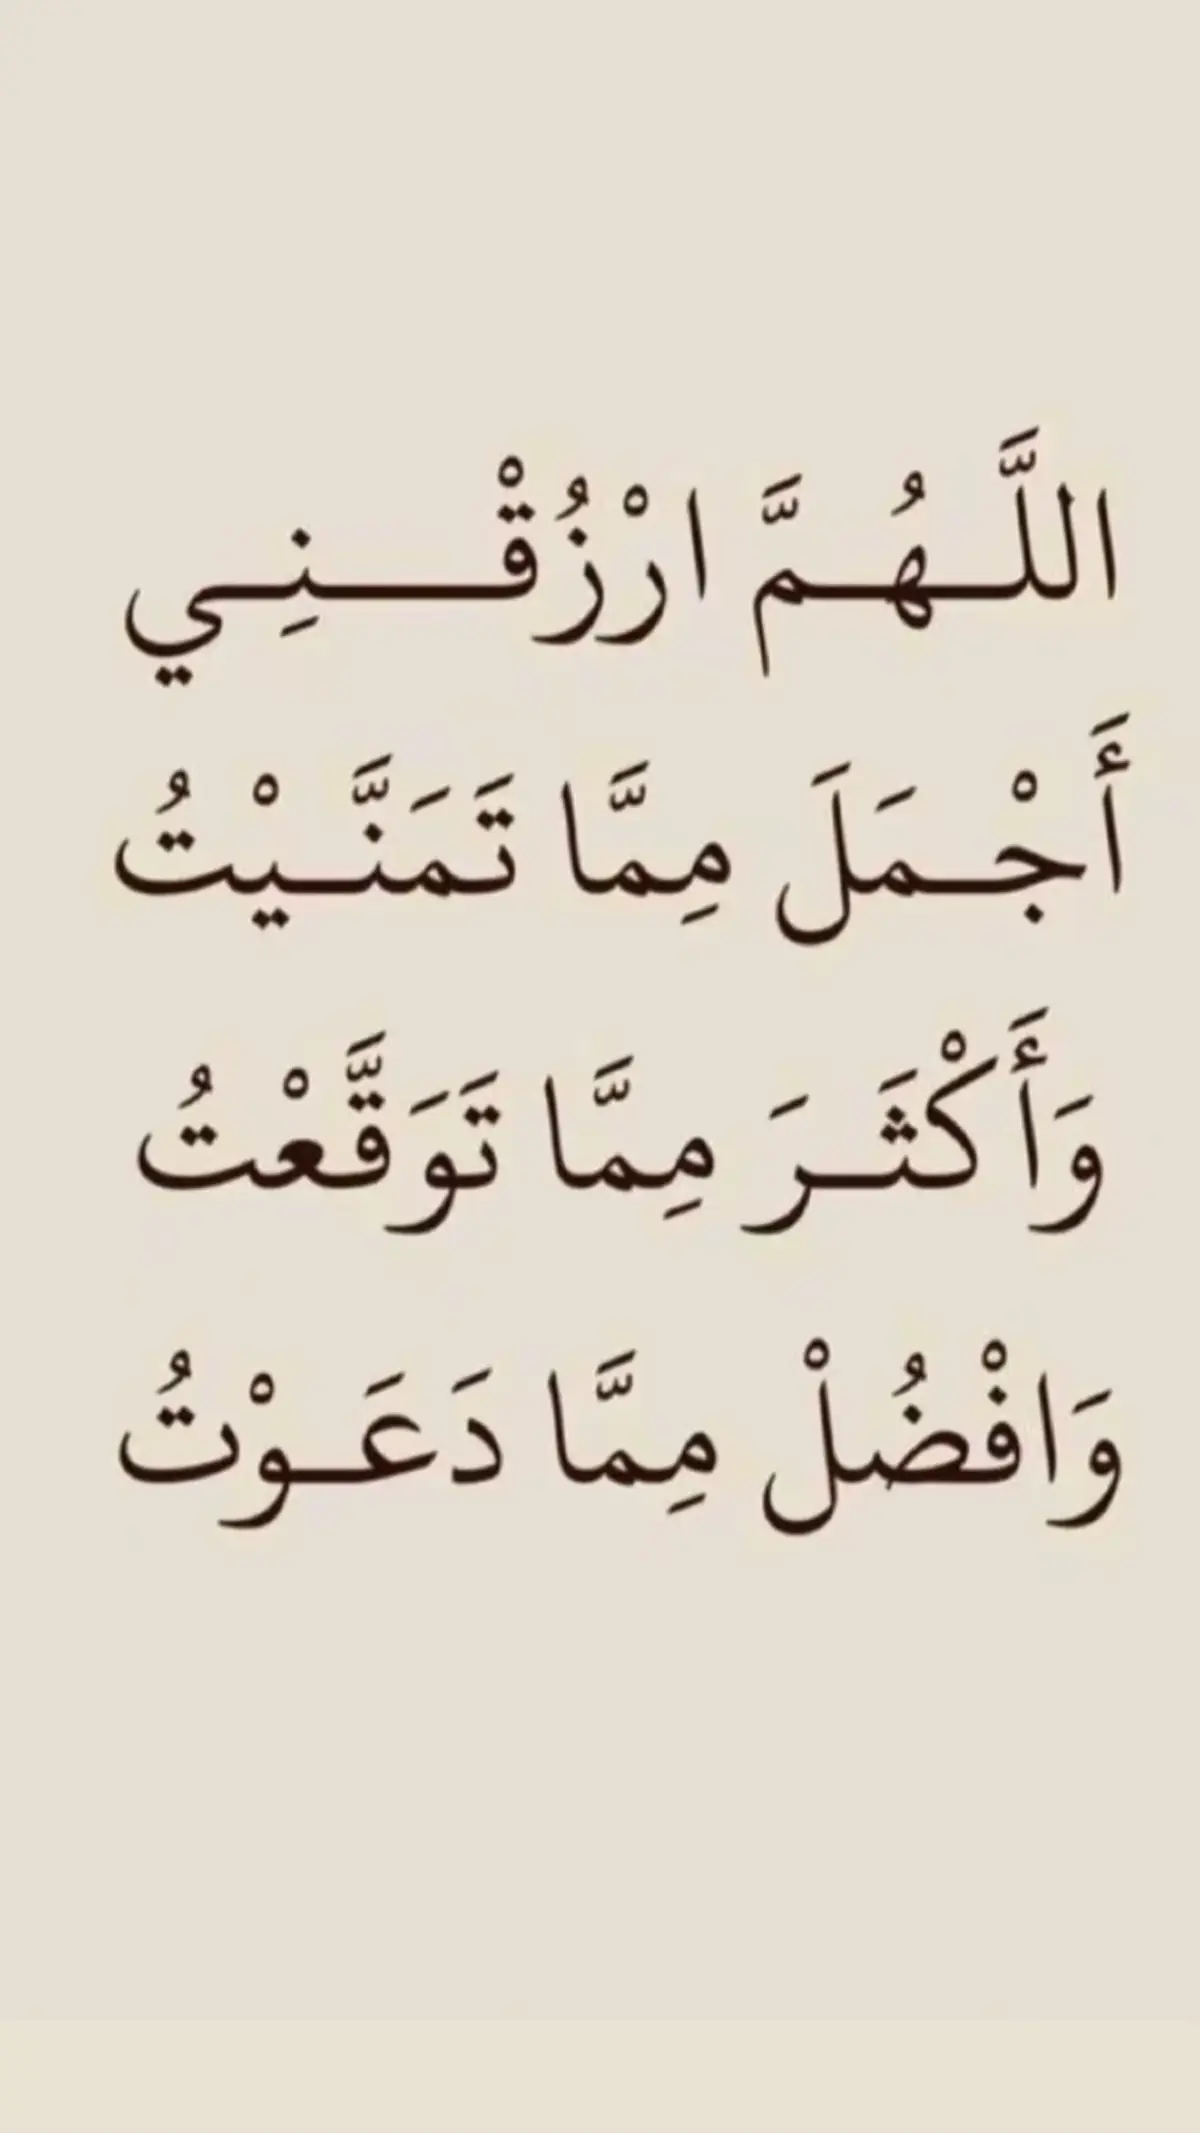 اللَّهُمَّ ارْزُقْنِي
أَجْمَلَ مِمَّا تَمَنَّيْتُ
وَأَكْثَرَ مِمَّا تَوَقَّعْتُ
وَافْضُلْ مِمَّا دَعَوْتُ